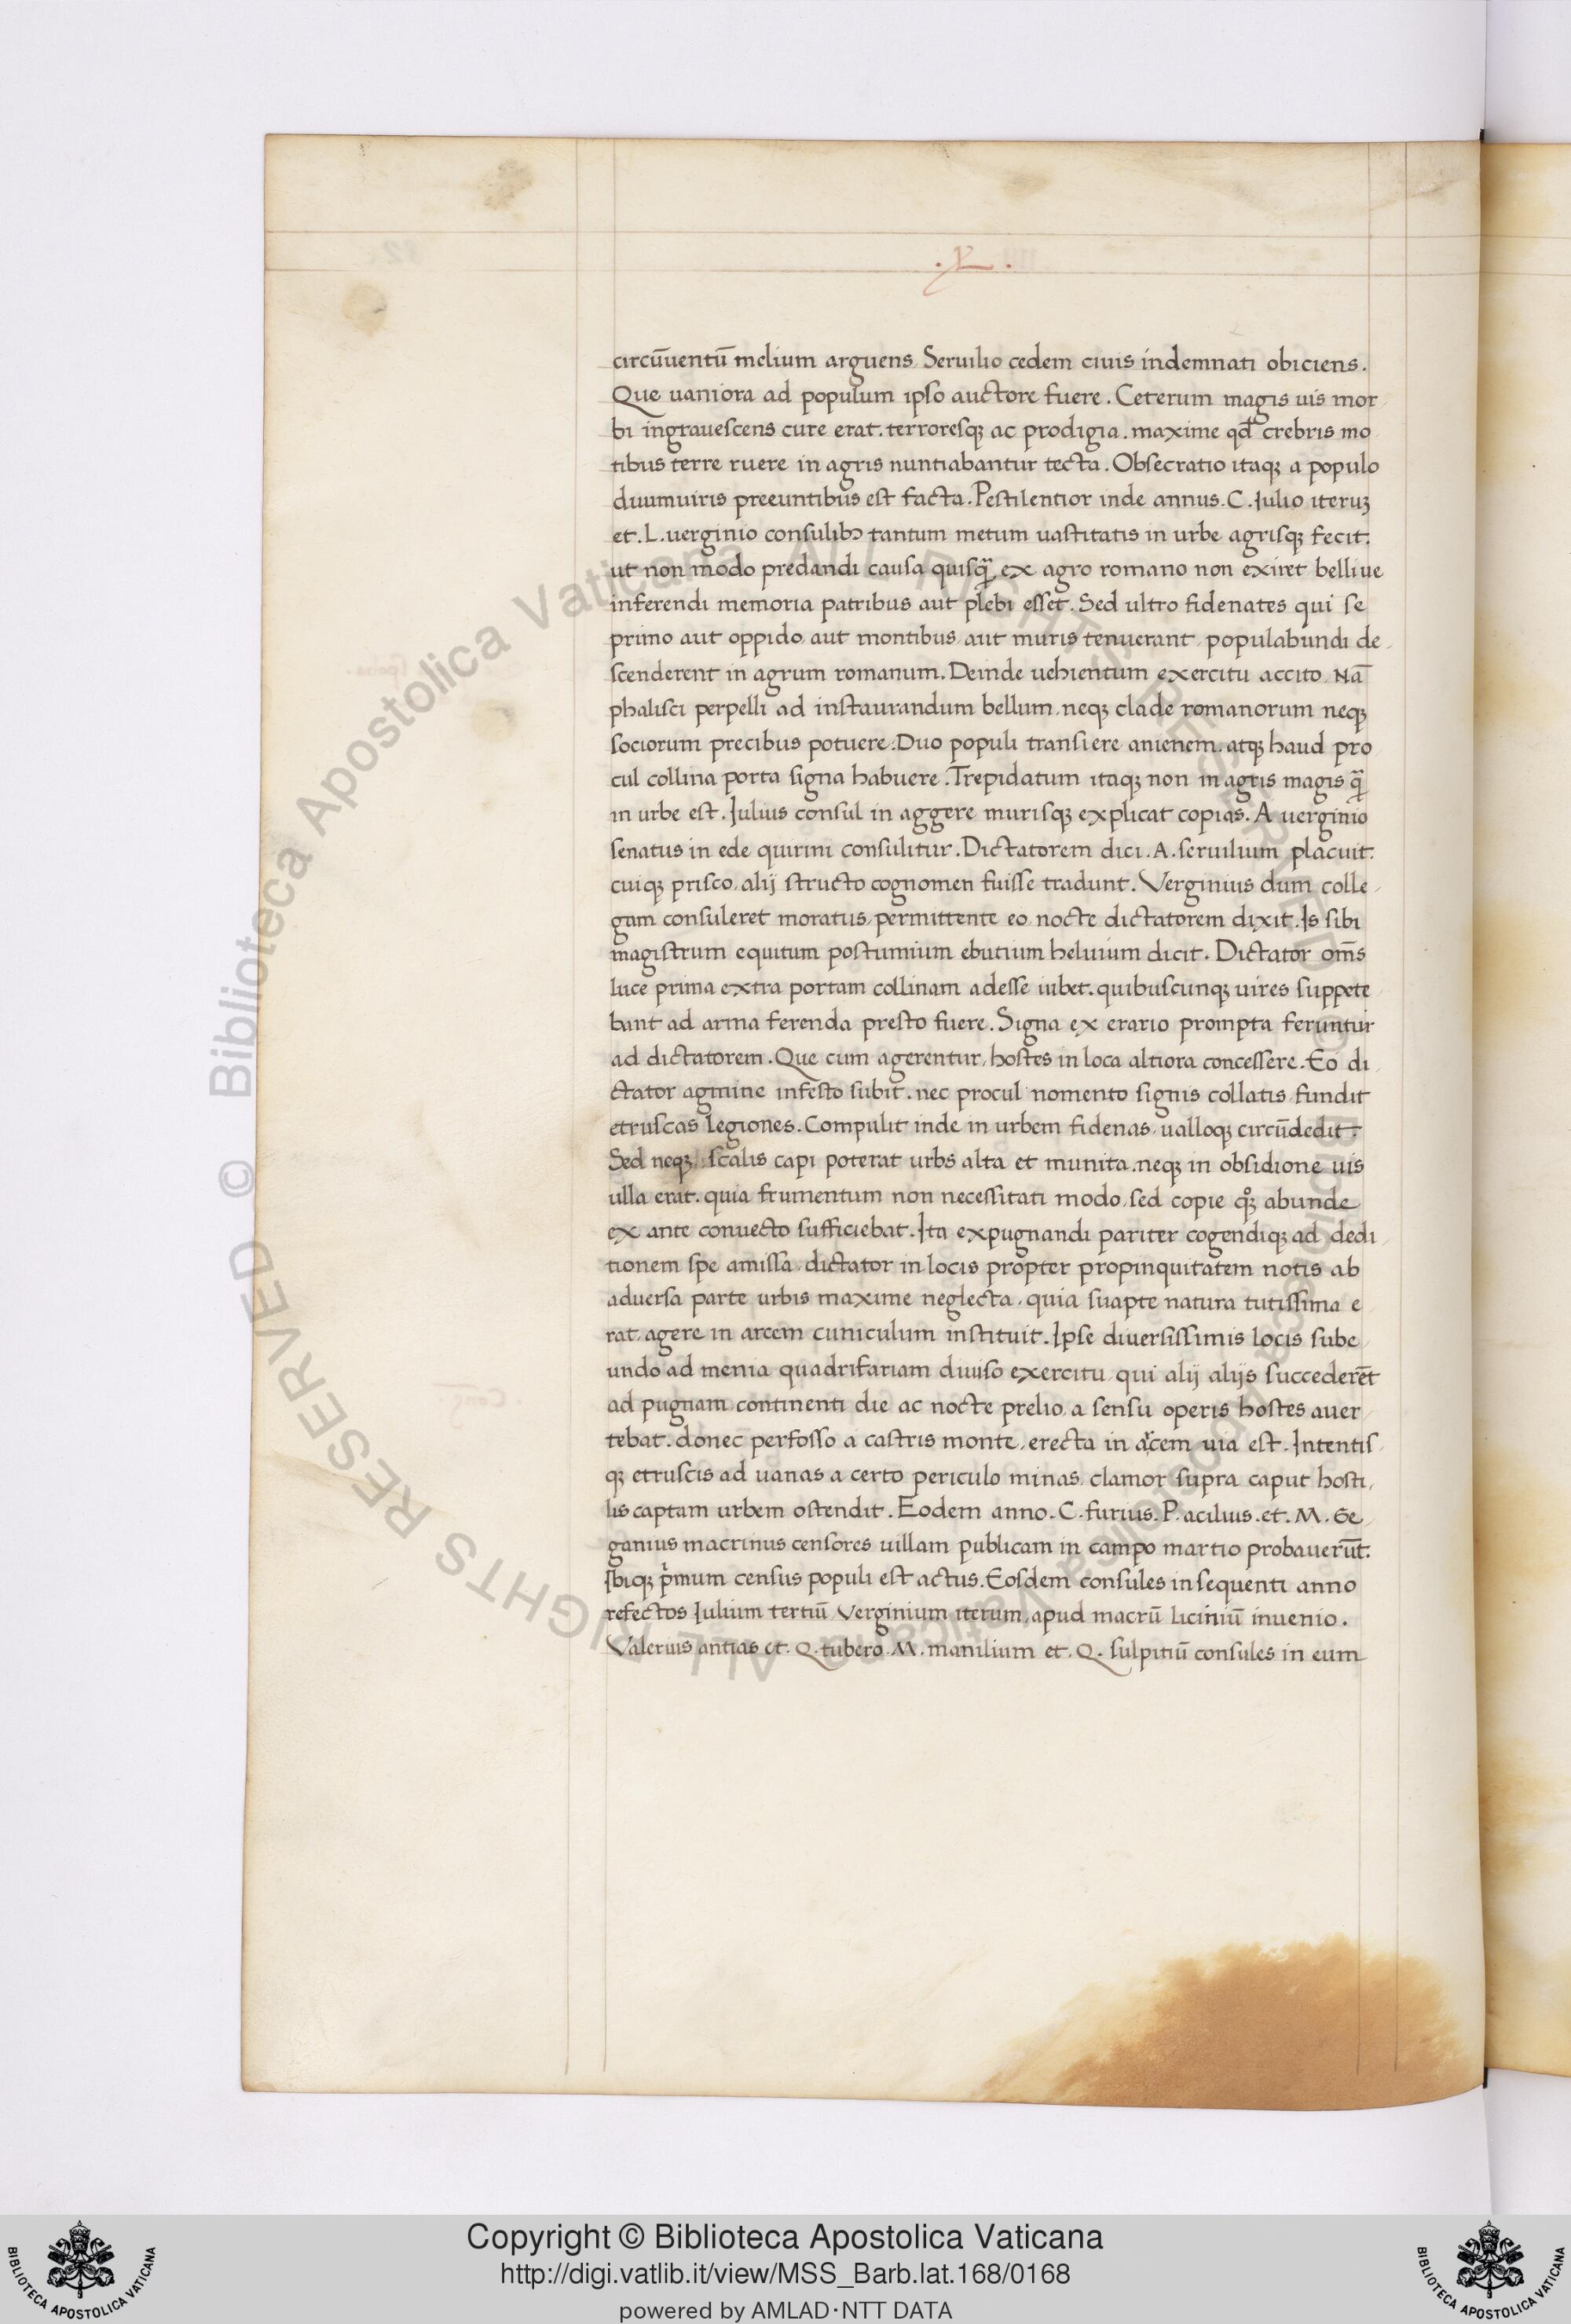 . L .
circūuentū melium arguens, Seruilio cedem ciuis indemnati obiciens.
Que uaniora ad populum ipso auctore fuere. Ceterum magis uis mor
bi ingrauescens cure erat. terroresq̃ ac prodigia. maxime qđ crebris mo
tibus terre ruere in agris nuntiabantur tecta. Obsecratio itaq̃ a populo
duumuiris preeuntibus est facta. Pestilentior inde annus. C. Iulio iteruʒ
et. L. uerginio consulibꝫ tantum metum uastitatis in urbe agrisq̃ fecit.
ut non modo predandi causa quisq̃ ex agro romano non exiret belliue
inferendi memoria patribus aut plebi esset. Sed ultro fidenates qui se
primo aut oppido, aut montibus, aut muris tenuerant, populabundi de
scenderent in agrum romanum. Deinde uehientum exercitu accito, Nā
phalisci perpelli ad instaurandum bellum, neq̃ clade romanorum neq̃
sociorum precibus potuere. Duo populi transiere anienem. atq̃ haud pro
cul collina porta signa habuere. Trepidatum itaq̃ non in agris magis q̃
in urbe est. Iulius consul in aggere murisq̃ explicat copias. A uerginio
senatus in ede quirini consulitur. Dictatorem dici. A. seruilium placuit.
cuiq̃ prisco, alij structo cognomen fuisse tradunt. Verginius dum colle
gam consuleret moratus, permittente eo, nocte dictatorem dixit. Is sibi
magistrum equitum postumium ebutium heluium dicit. Dictator om̄s
luce prima extra portam collinam adesse iubet. quibuscunq̃ uires suppete
bant ad arma ferenda presto fuere. Signa ex erario prompta feruntur
ad dictatorem. Que cum agerentur, hostes in loca altiora concessere. Eo di
ctator agmine infesto subit. nec procul nomento signis collatis fundit
etruscas legiones. Compulit inde in urbem fidenas, ualloq̃ circūdedit.
Sed neq̃ scalis capi poterat urbs alta et munita. neq̃ in obsidione uis
ulla erat. quia frumentum non necessitati modo, sed copie qꝫ abunde
ex ante conuecto sufficiebat. Ita expugnandi pariter cogendiq̃ ad dedi
tionem spe amissa, dictator in locis propter propinquitatem notis ab
aduersa parte urbis maxime neglecta, quia suapte natura tutissima e
rat, agere in arcem cuniculum instituit. Ipse diuersissimis locis sube
undo ad menia quadrifariam diuiso exercitu, qui alij alijs succederēt
ad pugnam continenti die ac nocte prelio, a sensu operis hostes auer
tebat. donec perfosso a castris monte, erecta in arcem uia est. Intentis
q̃ etruscis ad uanas a certo periculo minas, clamor supra caput hosti
lis captam urbem ostendit. Eodem anno. C. furius. P. acilius. et. M. Ge
ganius macrinus censores uillam publicam in campo martio probauerūt.
Ibiq̃ p̄mum census populi est actus. Eosdem consules insequenti anno
refectos Iulium tertiū Verginium iterum, apud macrū liciniū inuenio.
Valerius antias et. Q. tubero. M. manilium et. Q. sulpitiū consules in eum
© Biblioteca Apostolica Vaticana ALL RIGHTS RESERVED
Copyright © Biblioteca Apostolica Vaticana
http://digi.vatlib.it/view/MSS_Barb.lat.168/0168
powered by AMLAD·NTT DATA
BIBLIOTECA APOSTOLICA VATICANA
BIBLIOTECA APOSTOLICA VATICANA